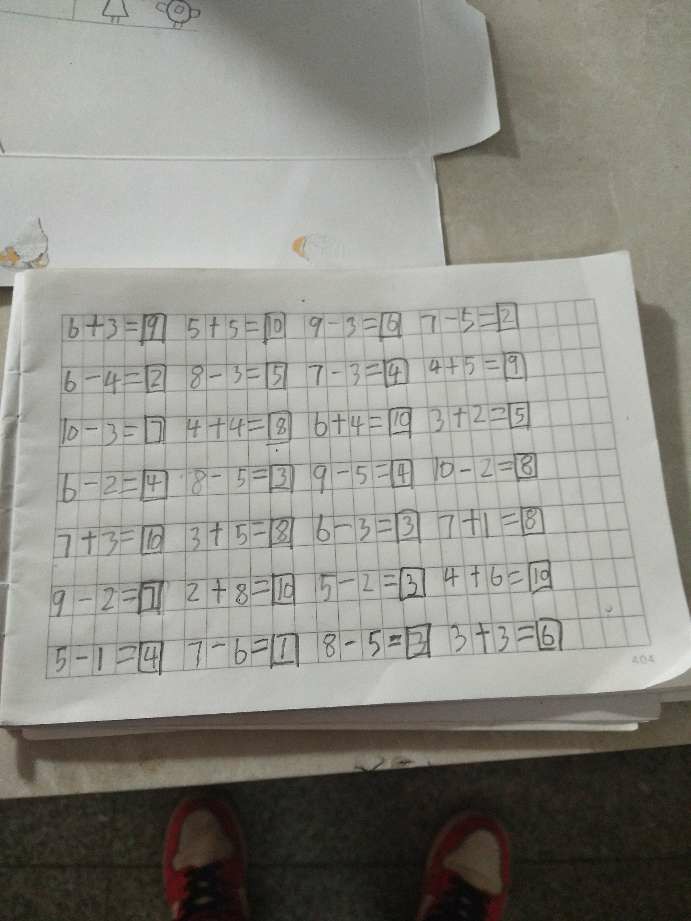 6+3=9 5+5=10 9-3=6 7-5=2
6-4=2 8-3=5 7-3=4 4+5=9
10-3=7 4+4=8 6+4=10 3+2=5
6-2=4 8-5=3 9-5=4 10-2=8
7+3=10 3+5=8 6-3=3 7+1=8
9-2=7 2+8=10 5-2=3 4+6=10
5-1=4 7-6=1 8-5=3 3+3=6
404